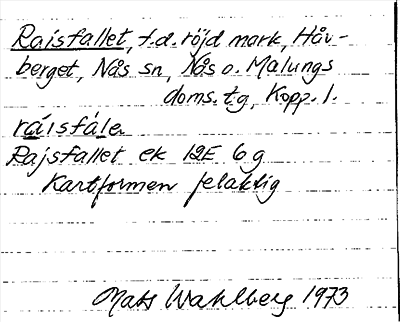 Raisfallet, f.d. röjd mark, Håv-
berget, Nås sn, Nås o. Malungs
doms. tg, Kopp. l.
ráisfála
Rajsfallet ek 12E 6g
Kartformen felaktig
Mats Wahlberg 1973